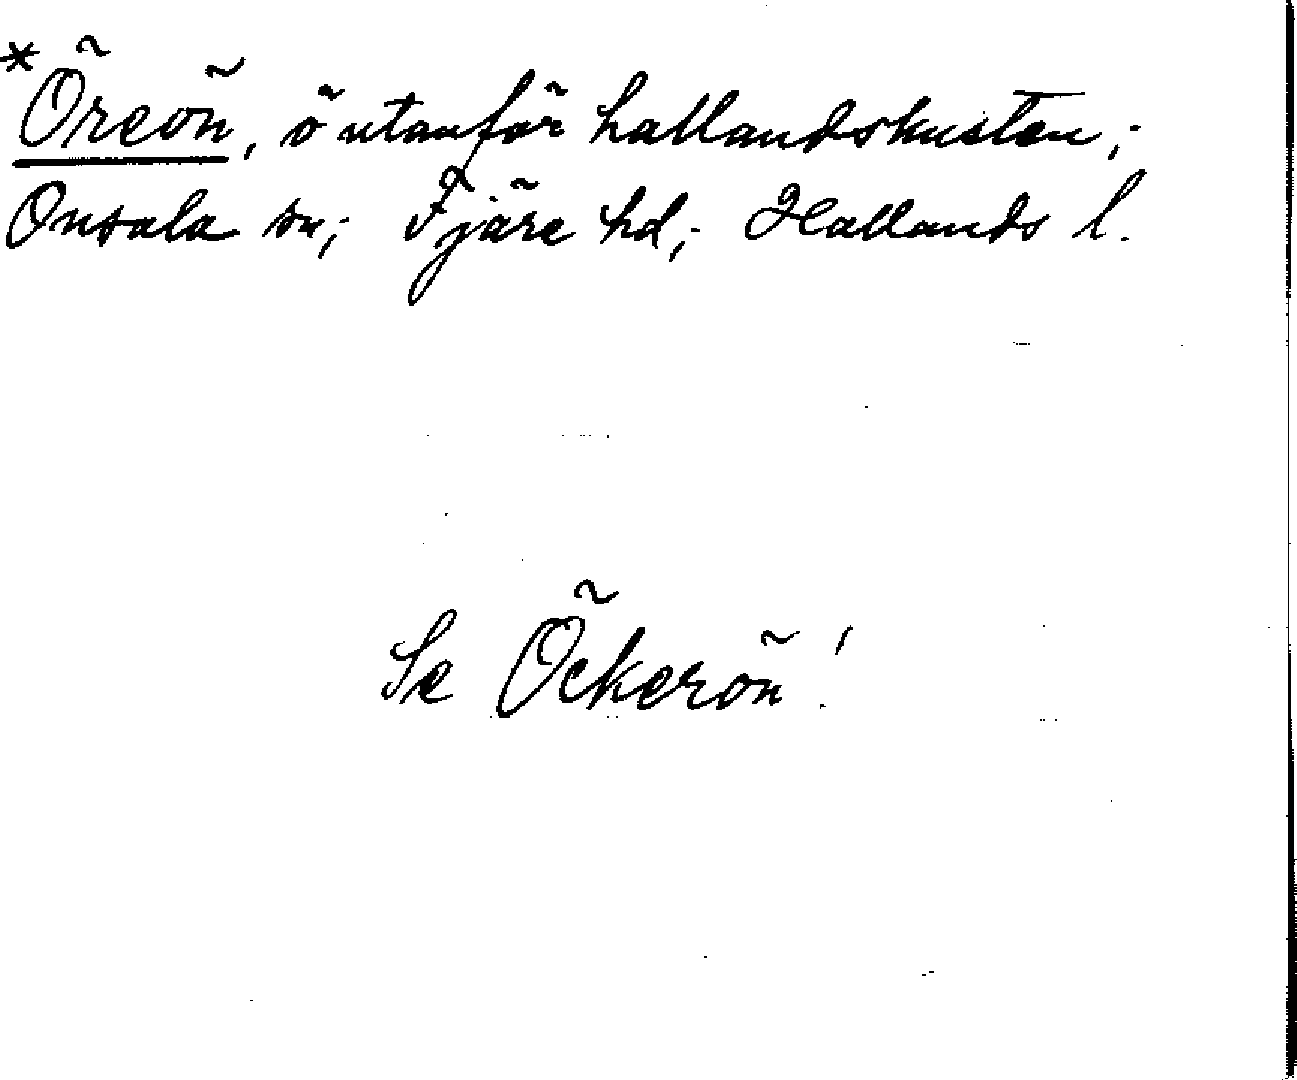 *Öreön, ö utanför hallandskusten;
Onsala sn; Fjäre hd; Hallands l.
Se Öckerön!